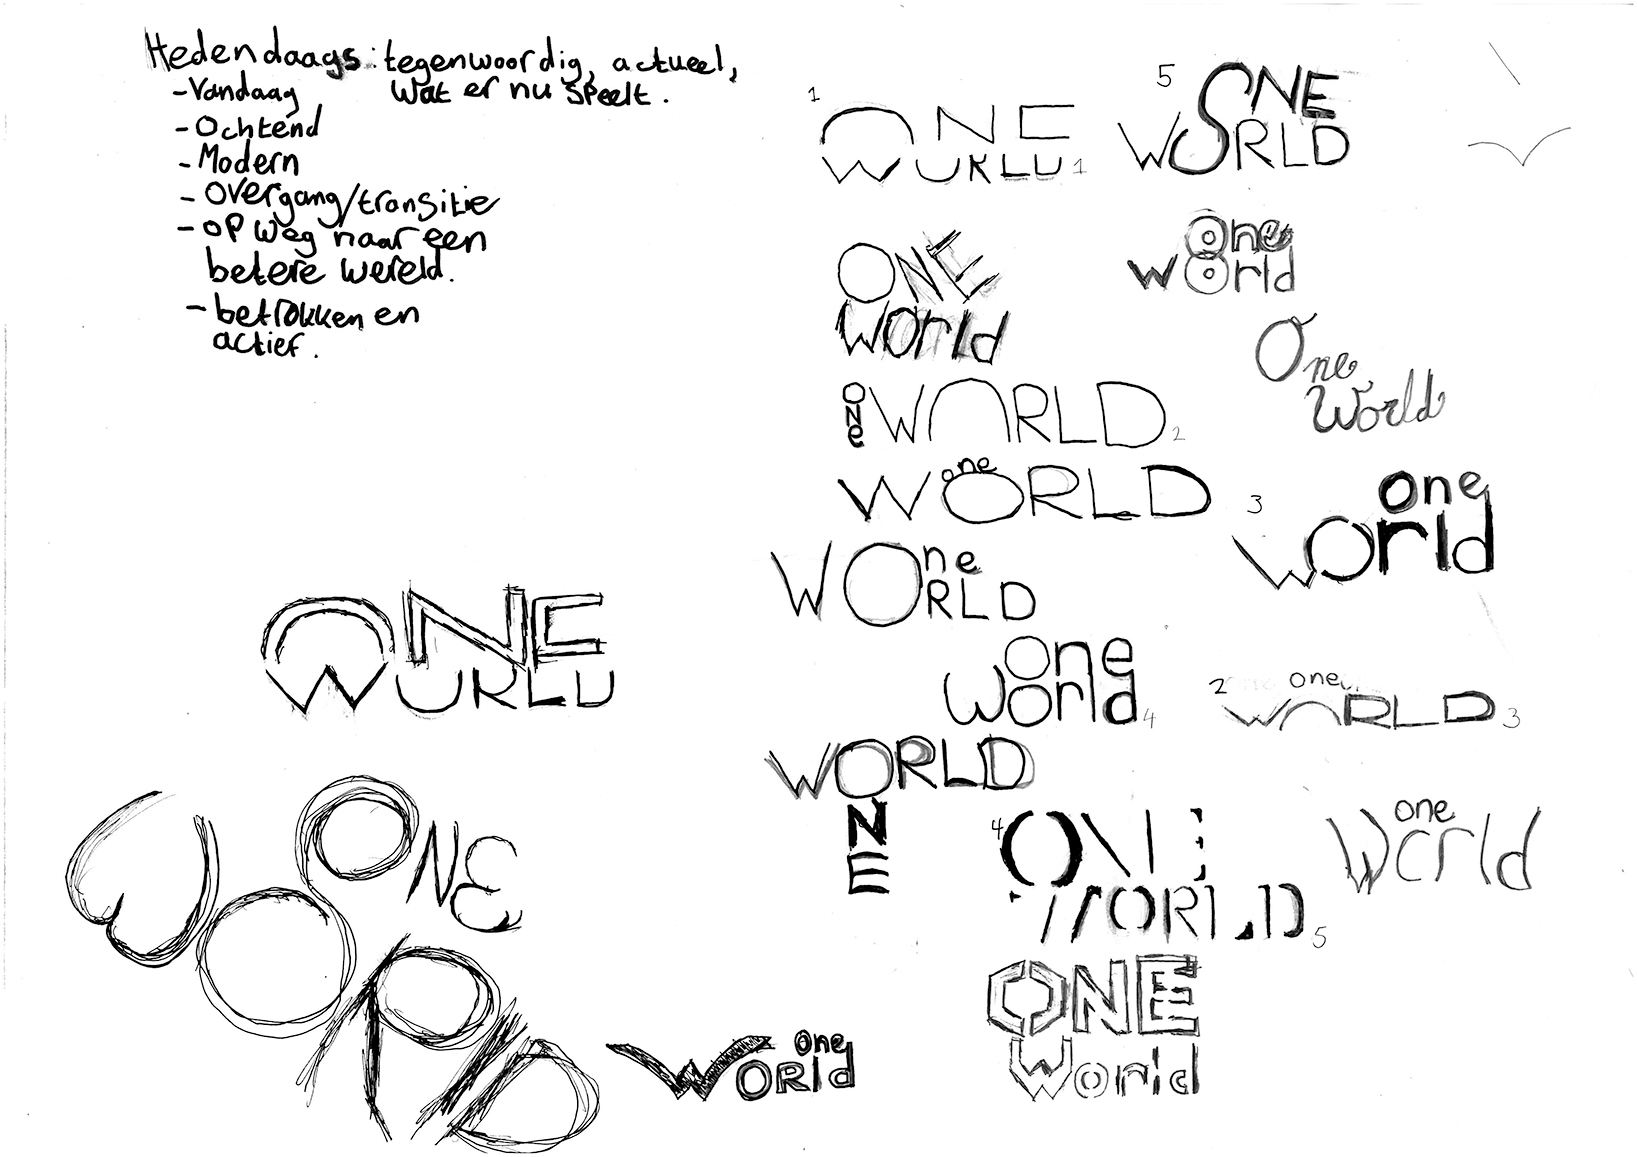 Hedendaags: tegenwoordig, actueel,
wat er nu speelt.
-Vandaag
-Ochtend
-Modern
-Overgang/transitie
-op weg naar een
betere wereld.
-betrokken en
actief.
1
ONE
WORLD 1
5
ONE
WORLD
ONE
World
one
world
One
World
one WORLD 2
one
WORLD
3
one
world
one
WORLD
one
world 4
2
one
WORLD 3
WORLD
N
E
4
ONE
WORLD 5
one
world
ONE
World
ONE
WORLD
ONE
WORLD
one
WORld